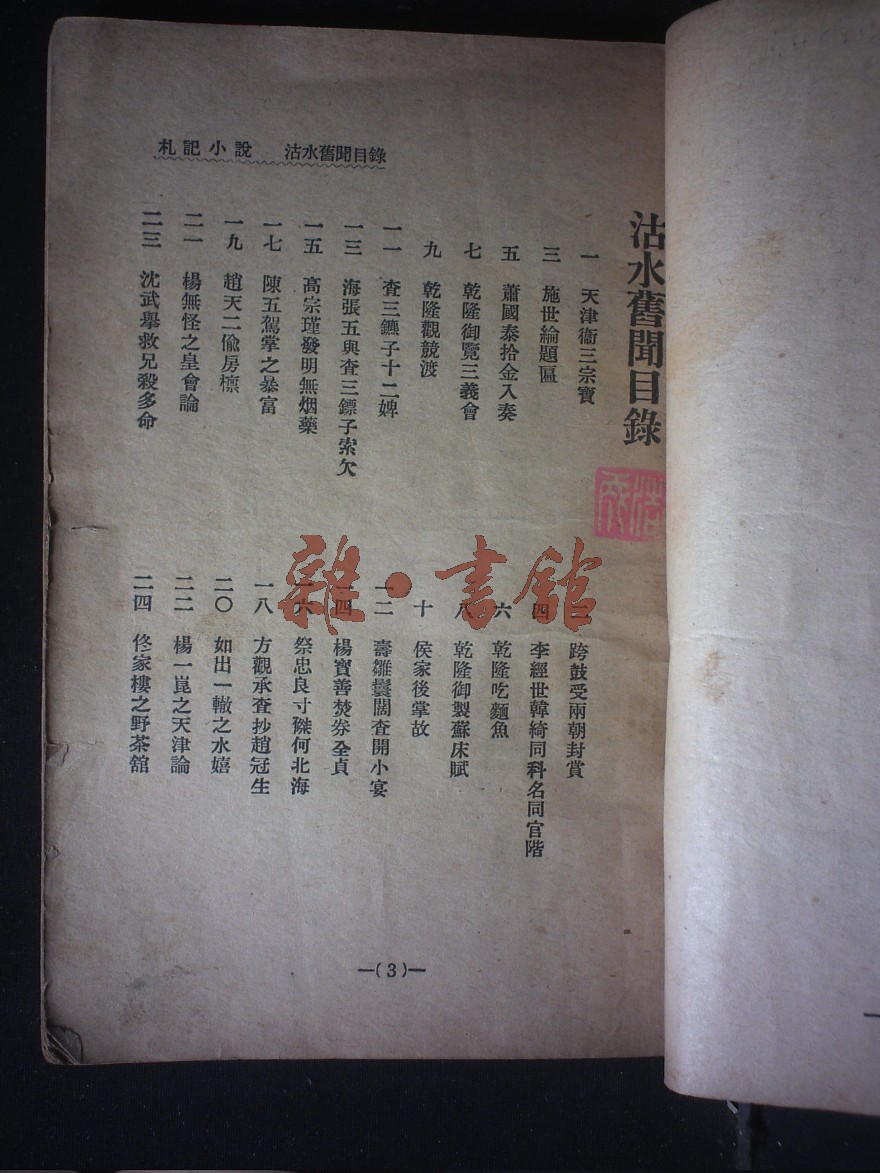 札記小說　沽水舊聞目錄
沽水舊聞目錄
一　天津衞三宗寶
二　跨鼓受兩朝封賞
三　施世綸題匾
四　李經世韓綺同科名同官階
五　蕭國泰拾金入奏
六　乾隆吃麵魚
七　乾隆御覽三義會
八　乾隆御製蘇床賦
九　乾隆觀競渡
十　侯家後掌故
一一　查三鑣子十二婢
一二　壽雛鬟闊查開小宴
一三　海張五與查三鏢子索欠
一四　楊寶善焚券全貞
一五　高宗瑾發明無烟藥
一六　祭忠良寸磔何北海
一七　陳五駕掌之暴富
一八　方觀承查抄趙冠生
一九　趙天二偷房檁
二〇　如出一轍之水嬉
二一　楊無怪之皇會論
二二　楊一崑之天津論
二三　沈武舉救兄殺多命
二四　佟家樓之野茶舘
—(3)—
雜·書館